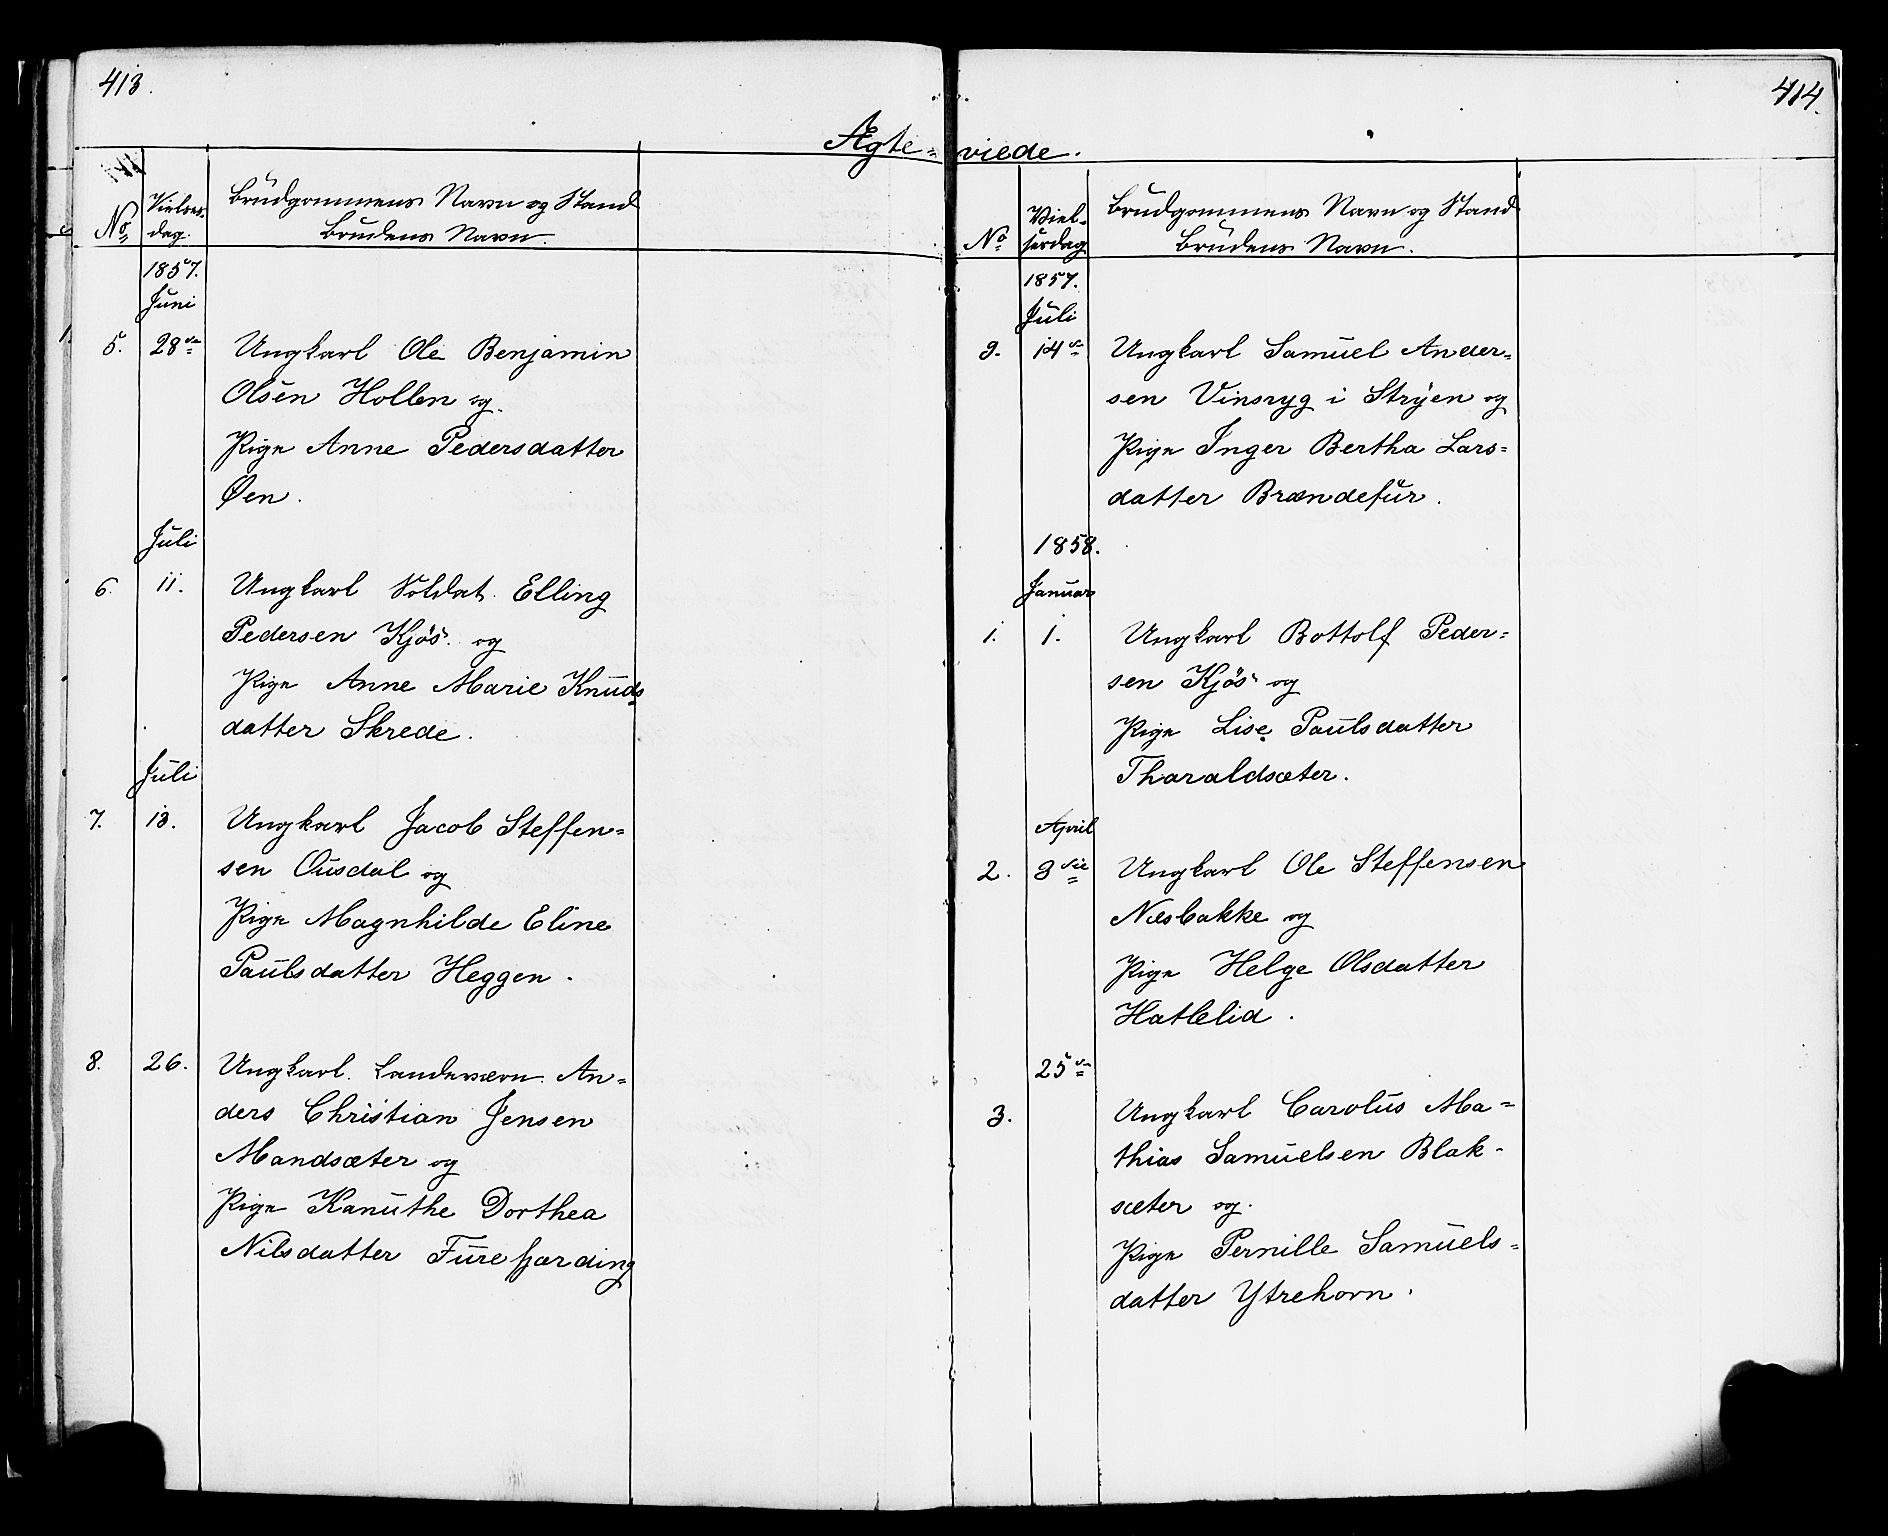 413.
Ægte-
No
Vielses-
dag.
Brudgommens Navn og Stand
Brudens Navn.
1857.
Juni
5. 28de Ungkarl Ole Benjamin
Olsen Hollen og
Pige Anne Pedersdatter
Øen.
Juli
6. 11. Ungkarl Soldat Elling
Pedersen Kjös og
Pige Anne Marie Knuds
datter Skrede.
Juli
7. 13. Ungkarl Jacob Steffen=
sen Ousdal og
Pige Magnhilde Eline
Paulsdatter Heggen.
8. 26. Ungkarl Landeværn. An=
ders Christian Jensen
Mandsæter og
Pige Kanuthe Dorthea
Nilsdatter Furefjærding
414.
viede.
No
Viel-
sesdag
Brudgommens Navn og Stand
Brudens Navn.
1857.
Juli
9. 14de Ungkarl Samuel Ander=
sen Vinsryg i Stryen og
Pige Inger Bertha Lars=
datter Brændefur.
1858.
Januar
1. 1. Ungkarl Bottolf Peder=
sen Kjös og
Pige Lise Paulsdatter
Tharaldsæter.
April
2. 3die Ungkarl Ole Steffensen
Næsbakke og
Pige Helge Olsdatter
Hatlelid.
25de
3. Ungkarl Carolus Ma=
thias Samuelsen Blak-
sæter og
Pige Pernille Samuels=
datter Ytrehorn.